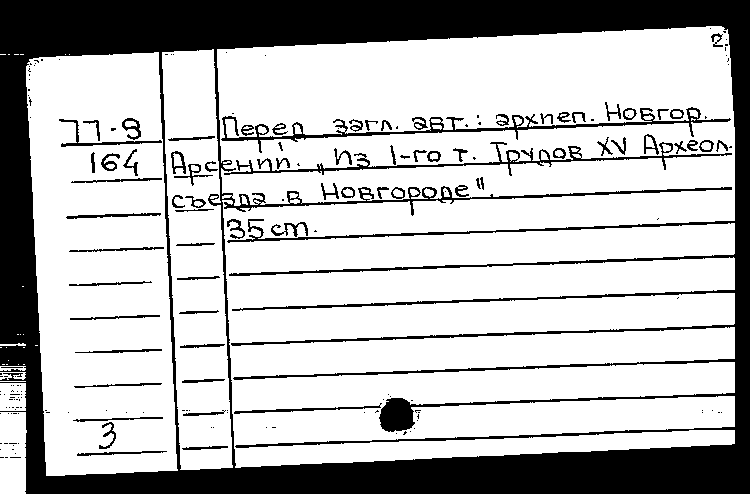 2
77-8 Перед загл. авт.: архиеп. Новгор.
164 Арсений. „Из 1-го т. Трудов XV Археол.
съезда в Новгороде".
35 cm.
3